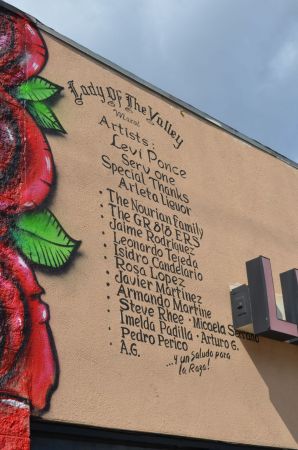 Lady Of The Valley
Mural
Artists:
Levi Ponce
Serv One
Special Thanks
Arleta Liquor
• The Nourian Family
• The GR818ERS
• Jaime Rodriquez
• Leonardo Tejeda
• Isidro Candelario
• Rosa Lopez
• Javier Martinez
• Armando Martine
• Steve Rhee • Micaela Serrano
• Imelda Padilla • Arturo G.
• Pedro Perico
• A.G.
...y un Saludo para
la Raza!
L